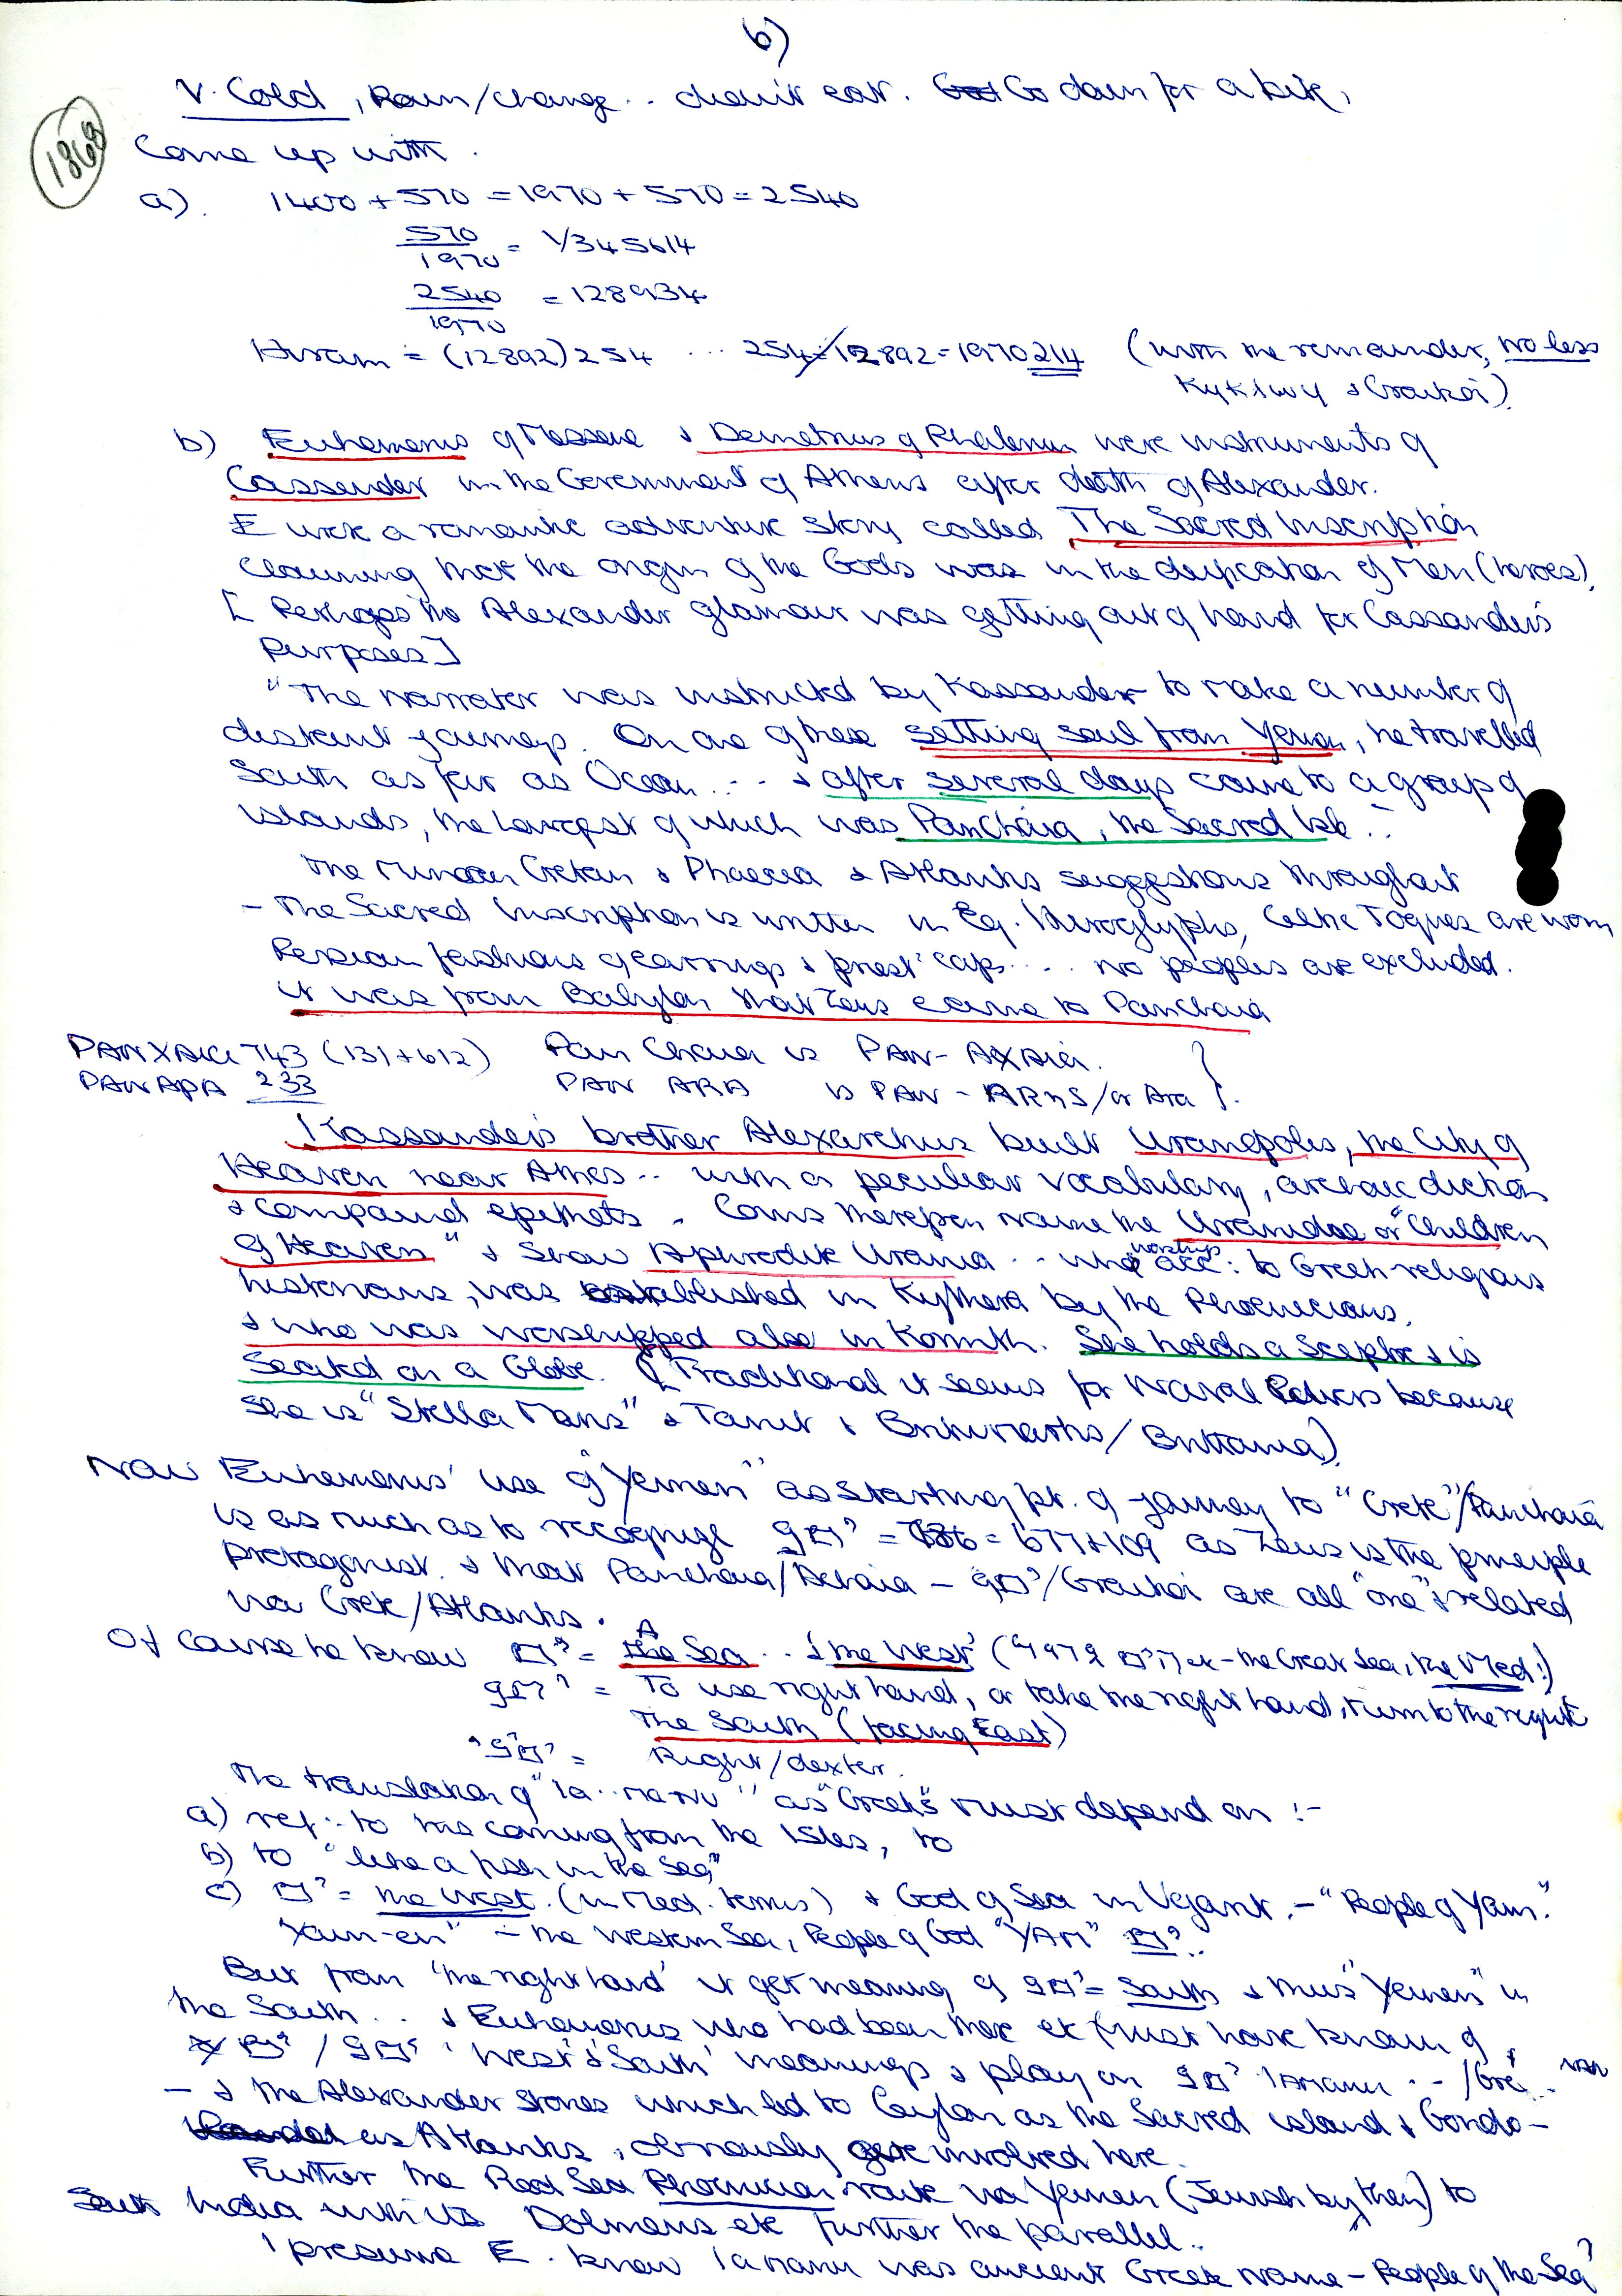 6)
V. Cold, Rain/change .. doesn't eat. Go down for a bite,
1868
Come up with.
a). 1400 + 570 = 1970 + 570 = 2540
570/1970 = 1/345614
2540/1970 = 128934
Hiram = (12892) 254 ... 254 ÷ 12892 = 1970214 (with the remainder, no less
Kyklwy & Graikoi).
b) Euhemerus of Messene & Demetrius of Phalerum were instruments of
Cassander in the Government of Athens after death of Alexander.
E wrote a romantic adventure story called The Sacred Inscription
claiming that the origin of the Gods was in the deification of Men (heroes).
[ Perhaps the Alexander glamour was getting out of hand for Cassander's
Purposes ]
"The narrator was instructed by Kassander to make a number of
distant journeys. On one of these setting sail from Yemen, he travelled
South as far as Ocean ... & after several days came to a group of
islands, the largest of which was Panchaia, the Sacred Isle ..
The Minoan Cretan & Phaecia & Atlantis suggestions throughout
- The Sacred Inscription is written in Eg. Hieroglyphs, Celtic Torques are worn
Persian fashions of earrings & priest caps .... no peoples are excluded.
it was from Babylon that Zeus came to Panchaia
PANXAIA 743 (131+612) Pan Chaia is PAN-AXAIA.
PANAPA 233 PAN ARA is PAN - ARNS/or Ara
Kassander's brother Alexarchus built Uranopolis, the City of
Heaven near Athos .. with a peculiar vocabulary, archaic diction
& compound epithets. Coins therefrom name the Uranidae or "Children
of Heaven" & show Aphrodite Urania .. who worship acc: to Greek religious
historians, was established in Kythera by the Phoenicians,
& who was worshipped also in Korinth. She holds a Sceptre & is
Seated on a Globe. [Traditional it seems for Naval Powers because
she is "Stella Maris" & Tanit & Britomartis/Brittania)
Now Euhemerus' use of "Yemen" as starting pt. of journey to "Crete"/Panchaia
is as much as to recognize = 786 = 677+109 as Zeus is the principle
protagonist. & that Panchaia/Achaia - /Graikoi are all "one" & related
via Crete/Atlantis.
Of course he knew = A Sea .. & the West' ( - the Great Sea, the Med!)
= To use right hand, or take the right hand, turn to the right
The South (facing East)
= Right/dexter.
The translation of "Ia..manu" as "Greeks" must depend on :-
a) ref: to his coming from the Isles, to
b) to "like a fish in the Sea"
c) = the West. (in Med. terms) & God of Sea in Ugarit. - "People of Yam."
Yam-en" - the Western Sea, People of God "YAM"
But from 'the right hand' it gets meaning of = South & thus "Yemen" in
the South .. & Euhemerus who had been there etc must have known of
/ 'West' & 'South' meanings & play on Iamanu .. /Gre
- & the Alexander stories which led to Ceylon as the Sacred island & Gondo-
as Atlantis, obviously get involved here.
Further the Red Sea Phoenician route via Yemen (Jewish by then) to
India with its Dolmens etc further the parallel..
I presume E. knew Iamanu was ancient Greek name - People of the Sea?